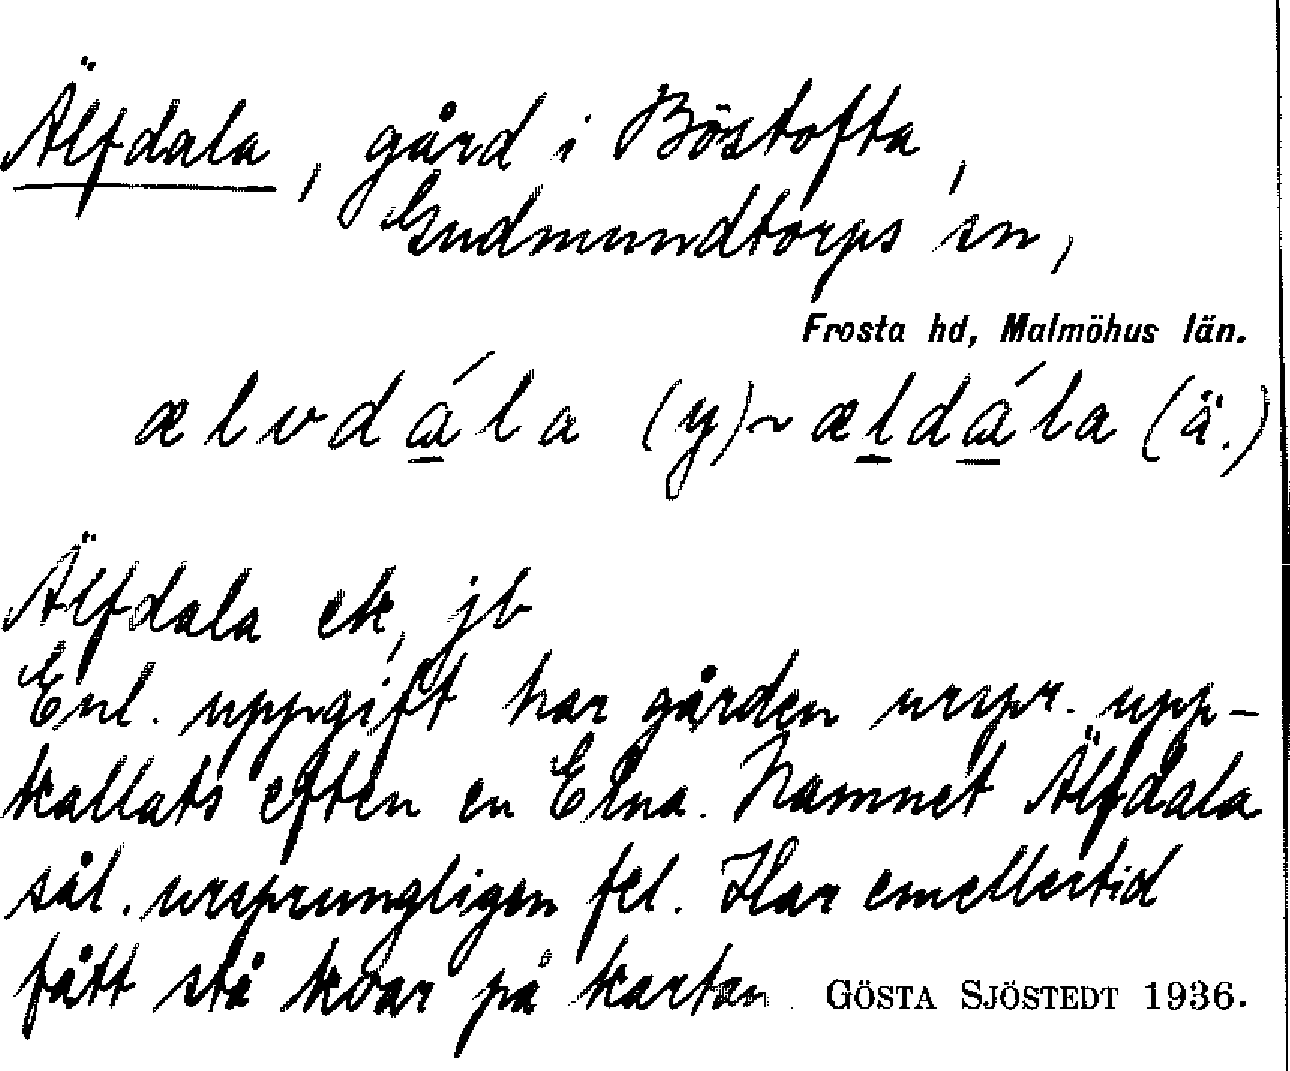 Älfdala, gård i Böstofta,
Gudmundtorps sn,
Frosta hd, Malmöhus län.
ælvdála (y)~ældála (ä.)
Älfdala ek, jb
Enl. uppgift har gården urspr. upp-
kallats efter en Elna. Namnet Älfdala
sål. ursprungligen fel. Har emellertid
fått stå kvar på kartan. GÖSTA SJÖSTEDT 1936.